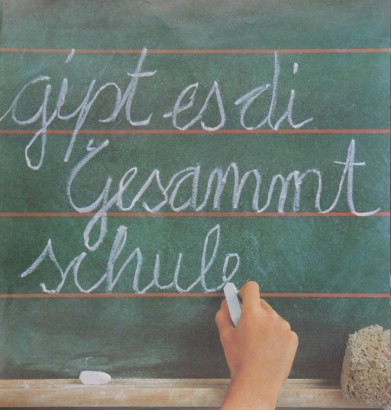 gipt es di
Gesammt
schule